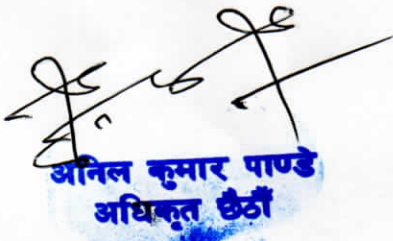 अनिल कुमार पाण्डे
अधिकृत छैठौं